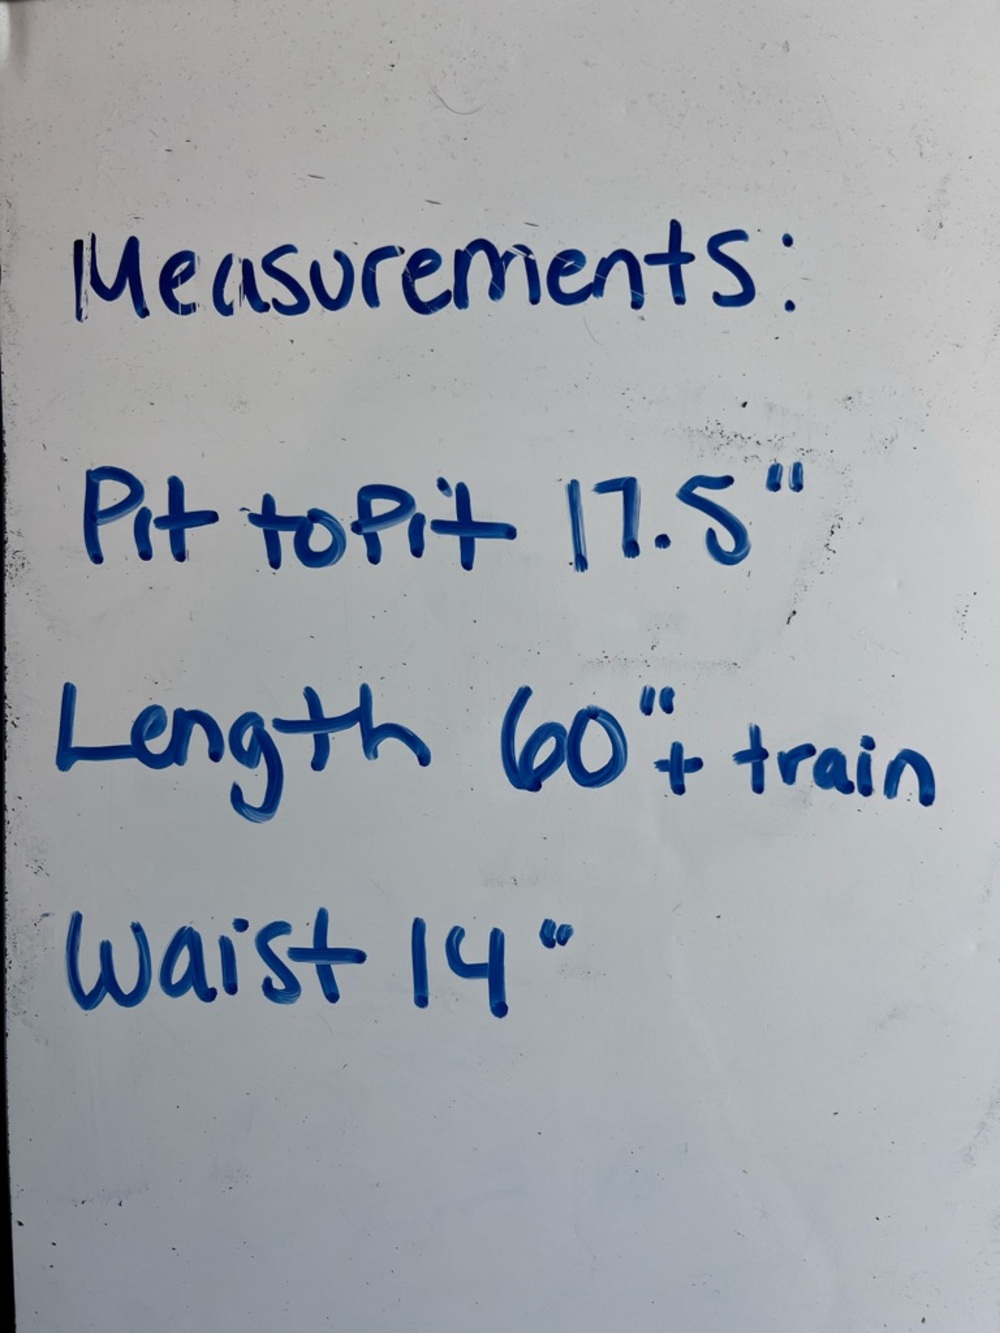 Measurements:
Pit to Pit 17.5"
Length 60" + train
Waist 14"